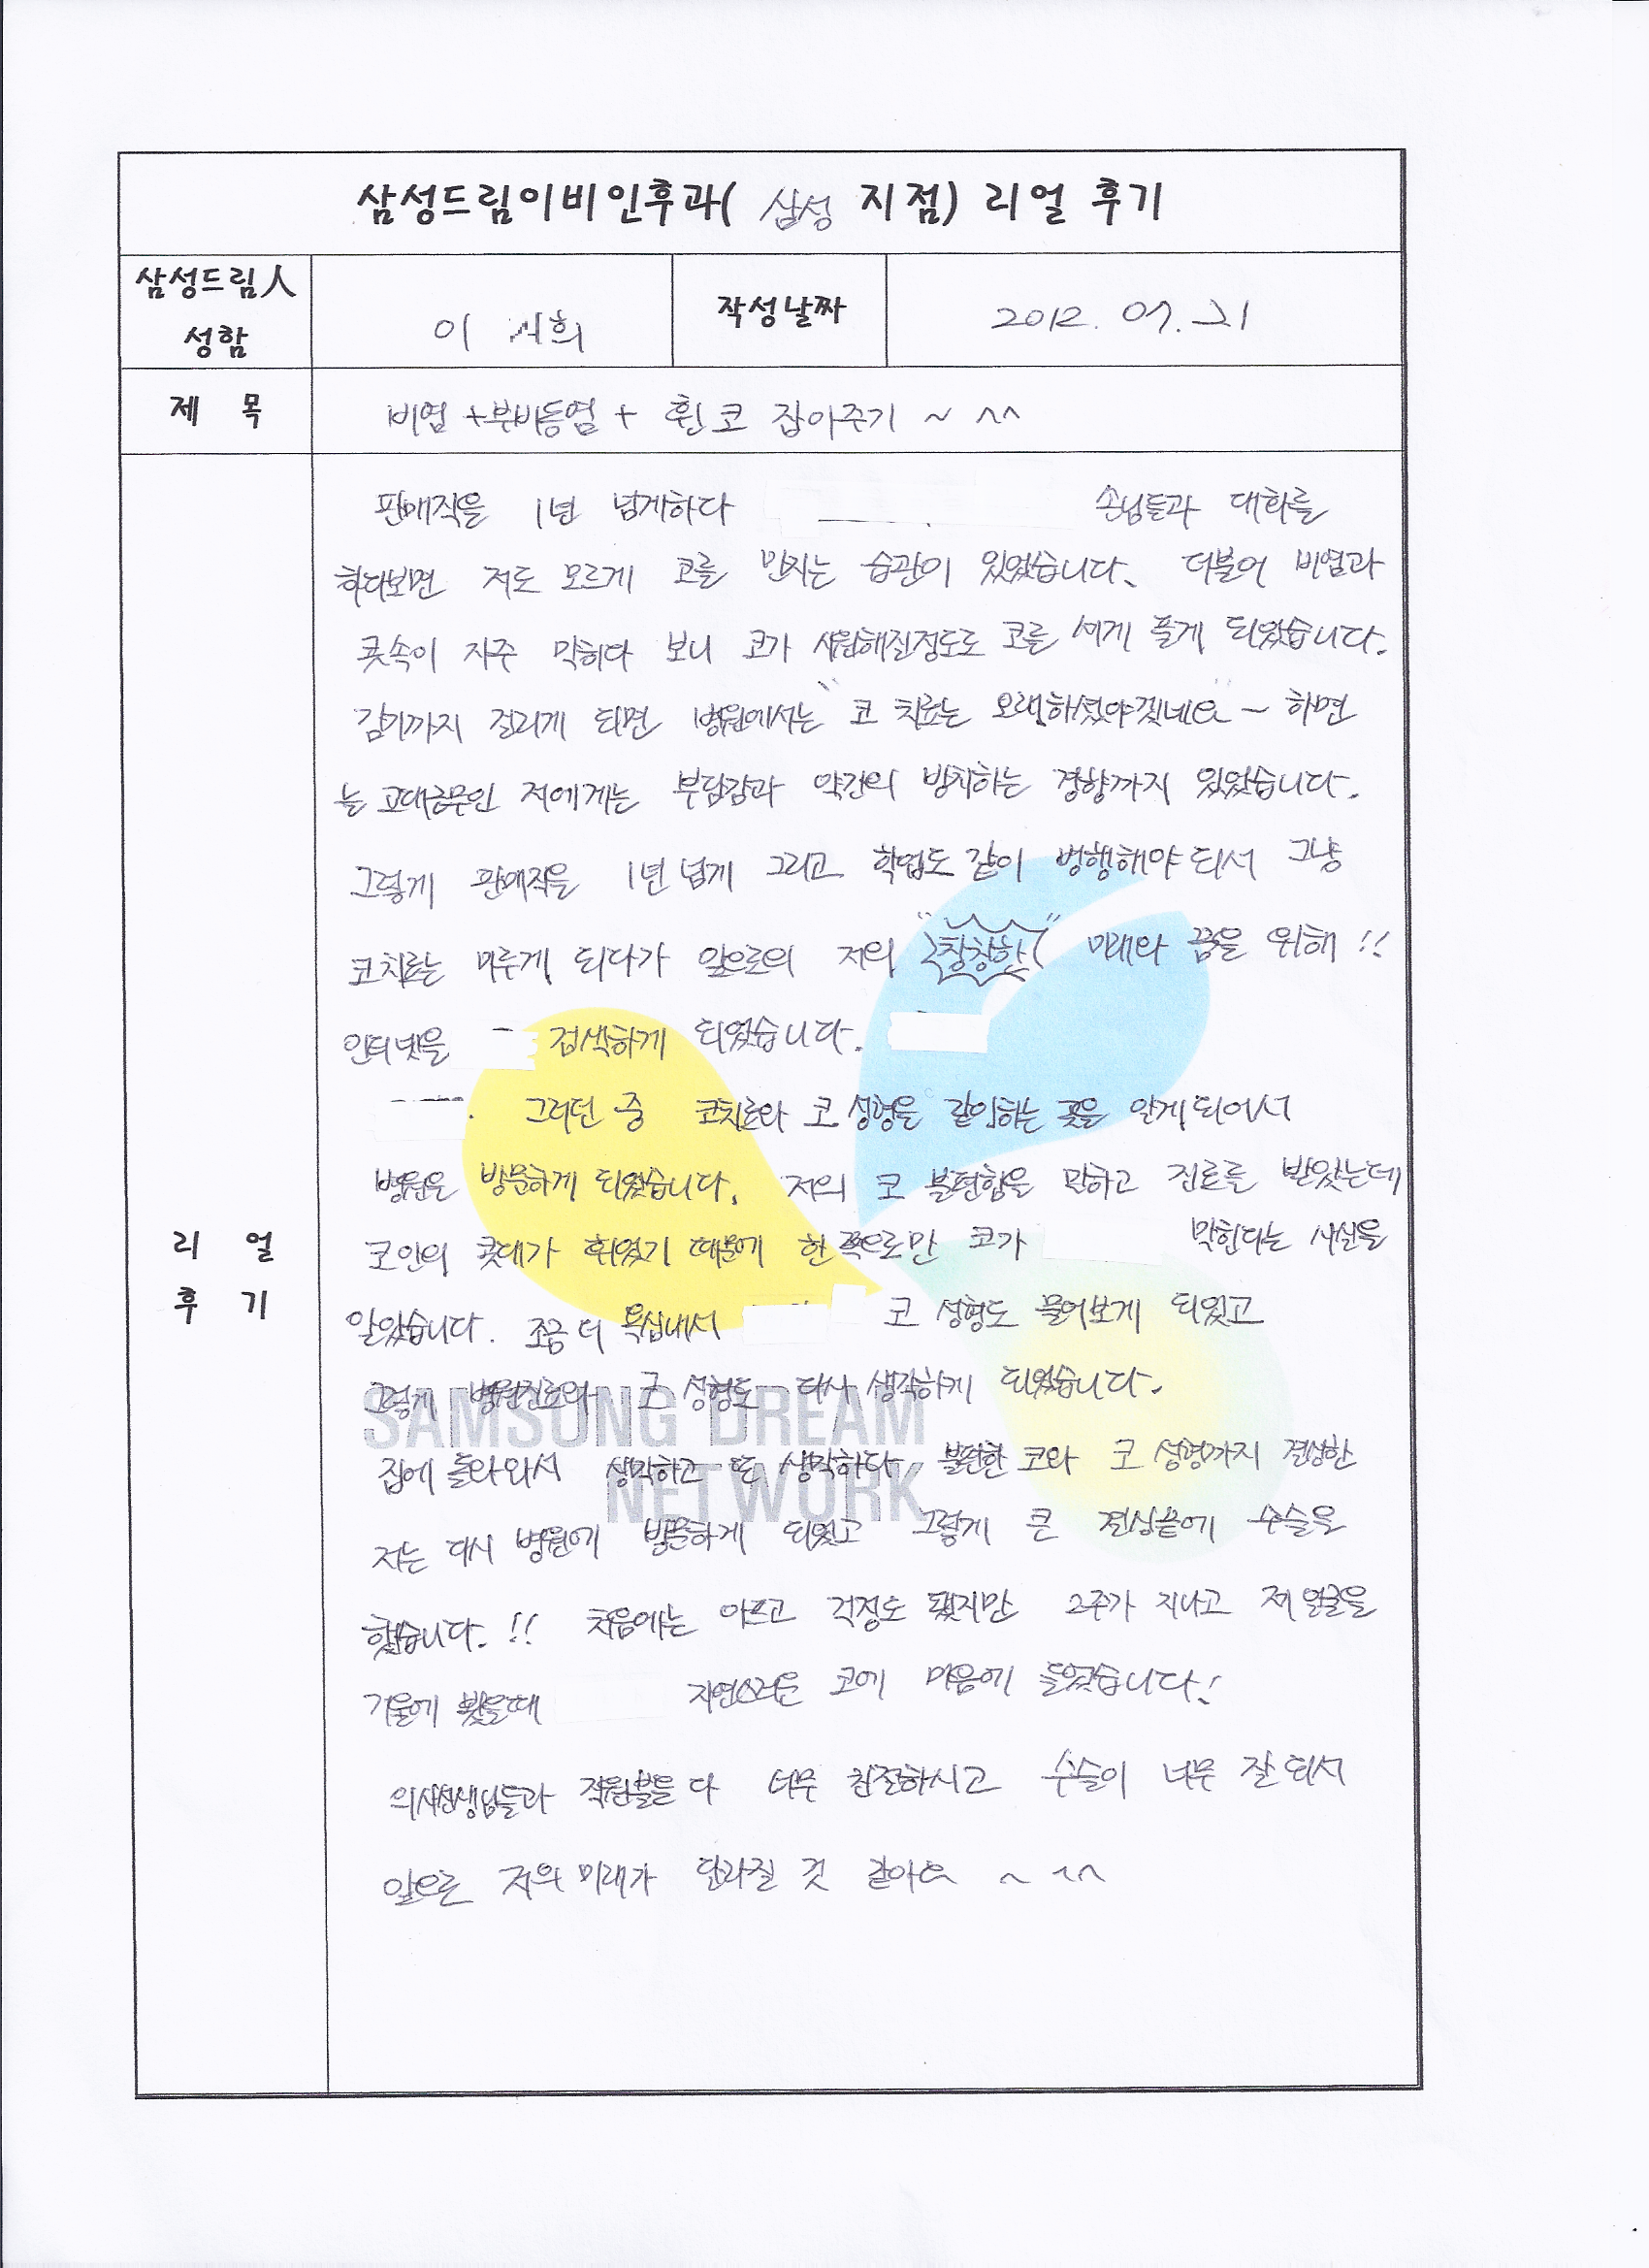 삼성드림이비인후과( 삼성 지점) 리얼 후기
삼성드림人 성함
이 희
작성날짜
2012. 07. 21
제 목
비염 +부비동염 + 휜 코 잡아주기 ~ ^^
리 얼 후 기
판매직을 1년 넘게하다 손님들과 대화를
하다보면 저도 모르게 코를 만지는 습관이 있었습니다. 더불어 비염과
콧속이 자주 막히다 보니 코가 시원해질정도로 코를 세게 풀게 되었습니다.
감기까지 걸리게 되면 병원에서는 "코 치료는 오래하셔야겠네요" ~ 하면
늘 고대근무인 저에게는 부담감과 약간의 방치하는 경향까지 있었습니다.
그렇게 판매직을 1년 넘게 그리고 학업도 같이 병행해야 되서 그냥
코치료는 미루게 되다가 앞으로의 저의 "창창한" 미래와 꿈을 위해 !!
인터넷을 검색하게 되었습니다.
그러던 중 코치료와 코 성형을 같이하는 곳을 알게되어서
병원을 방문하게 되었습니다. 저의 코 불편함을 말하고 진료를 받았는데
코안의 콧대가 휘었기 때문에 한쪽으로만 코가 막힌다는 사실을
알았습니다. 조금 더 욕심내서 코 성형도 물어보게 되었고
그렇게 병원진료와 코 성형도 다시 생각하게 되었습니다.
SAMSUNG DREAM
집에 돌아와서 생각하고 또 생각하다 불편한 코와 코 성형까지 결심한
NETWORK
저는 다시 병원에 방문하게 되었고 그렇게 큰 결심끝에 수술을
했습니다. !! 처음에는 아프고 걱정도 됐지만 2주가 지나고 제 얼굴을
거울에 봤을때 자연스러운 코에 마음에 들었습니다!
의사선생님들과 직원분들 다 너무 친절하시고 수술이 너무 잘 되서
앞으로 저의 미래가 달라질 것 같아요 ~ ^^